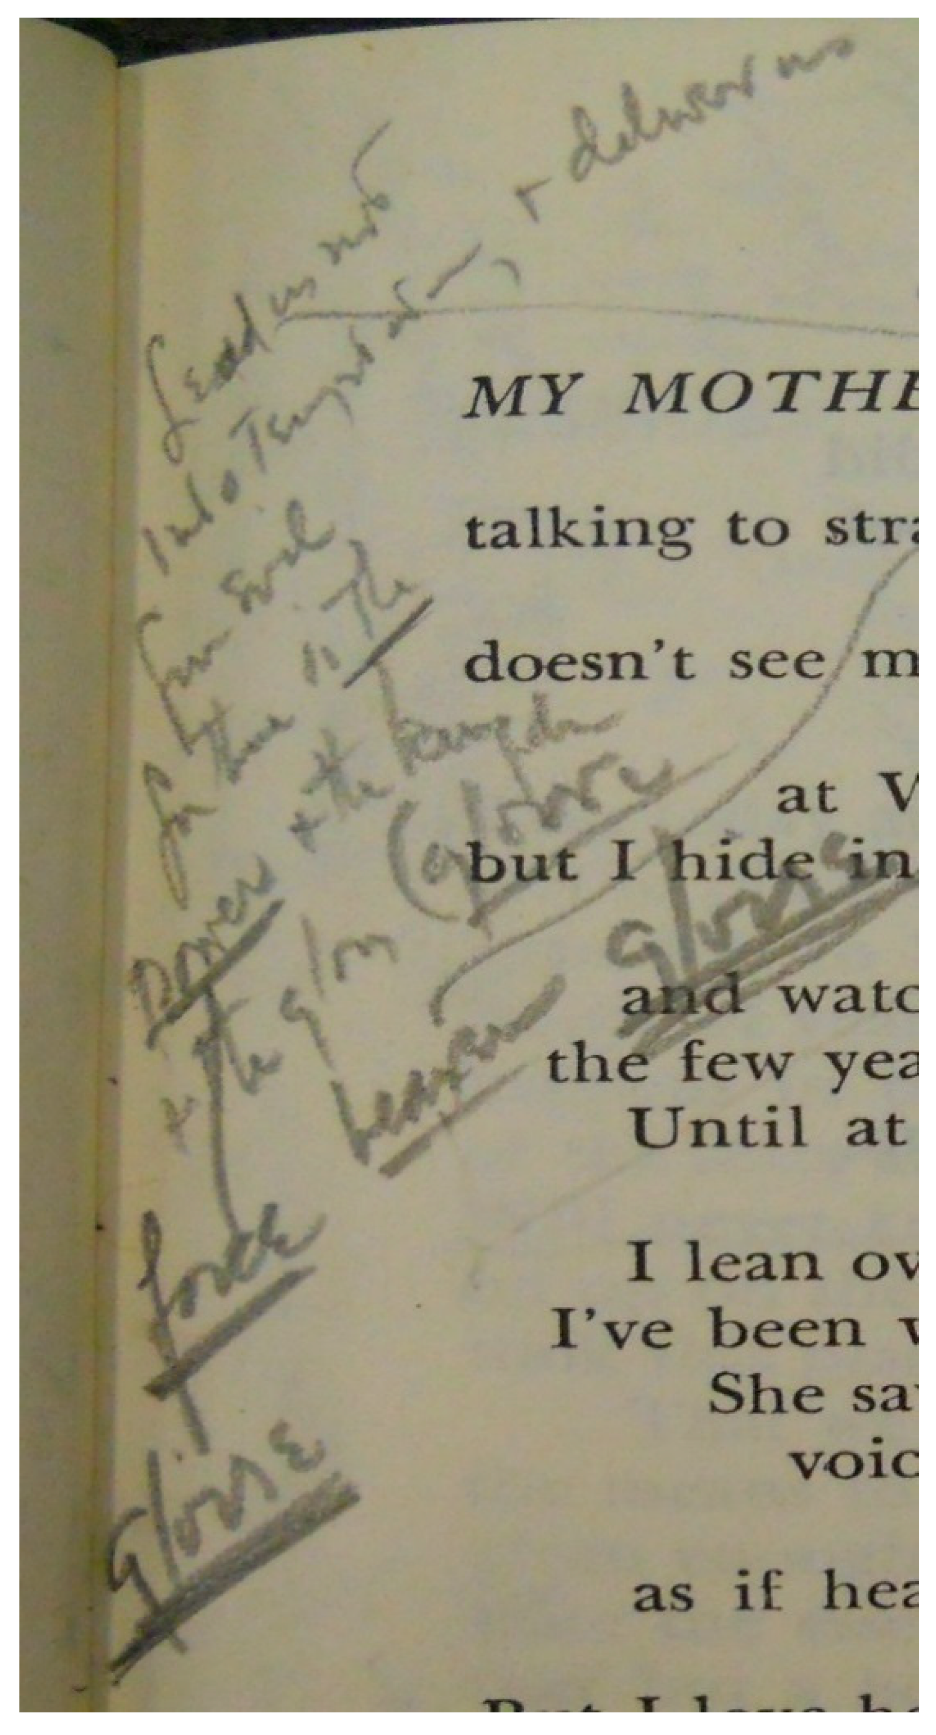 Lead us not
into Temptation, + deliver us
from evil
for thine is the
Power + the kingdom
+ the glory (gloire
heaven gloire
force
gloire
MY MOTHE
talking to stra
doesn't see m
at V
but I hide in
and watc
the few yea
Until at
I lean ov
I've been w
She sa
voic
as if hea
But I love he